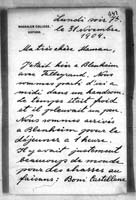 MAGDALEN COLLEGE,
OXFORD.
Lundi soir 7h.
le 8 Novembre
1909.
Ma très chère Maman,
J'étais hier à Blenheim
avec Talleyrand. Nous
sommes partis d'ici à
midi dans un hansom.
Le temps était froid
et il pleuvait un peu.
Nous sommes arrivés
à Blenheim pour le
déjeuner à 1 heure.
Il y avait justement
beaucoup de monde
pour des chasses au
faisans: Boni Castellane